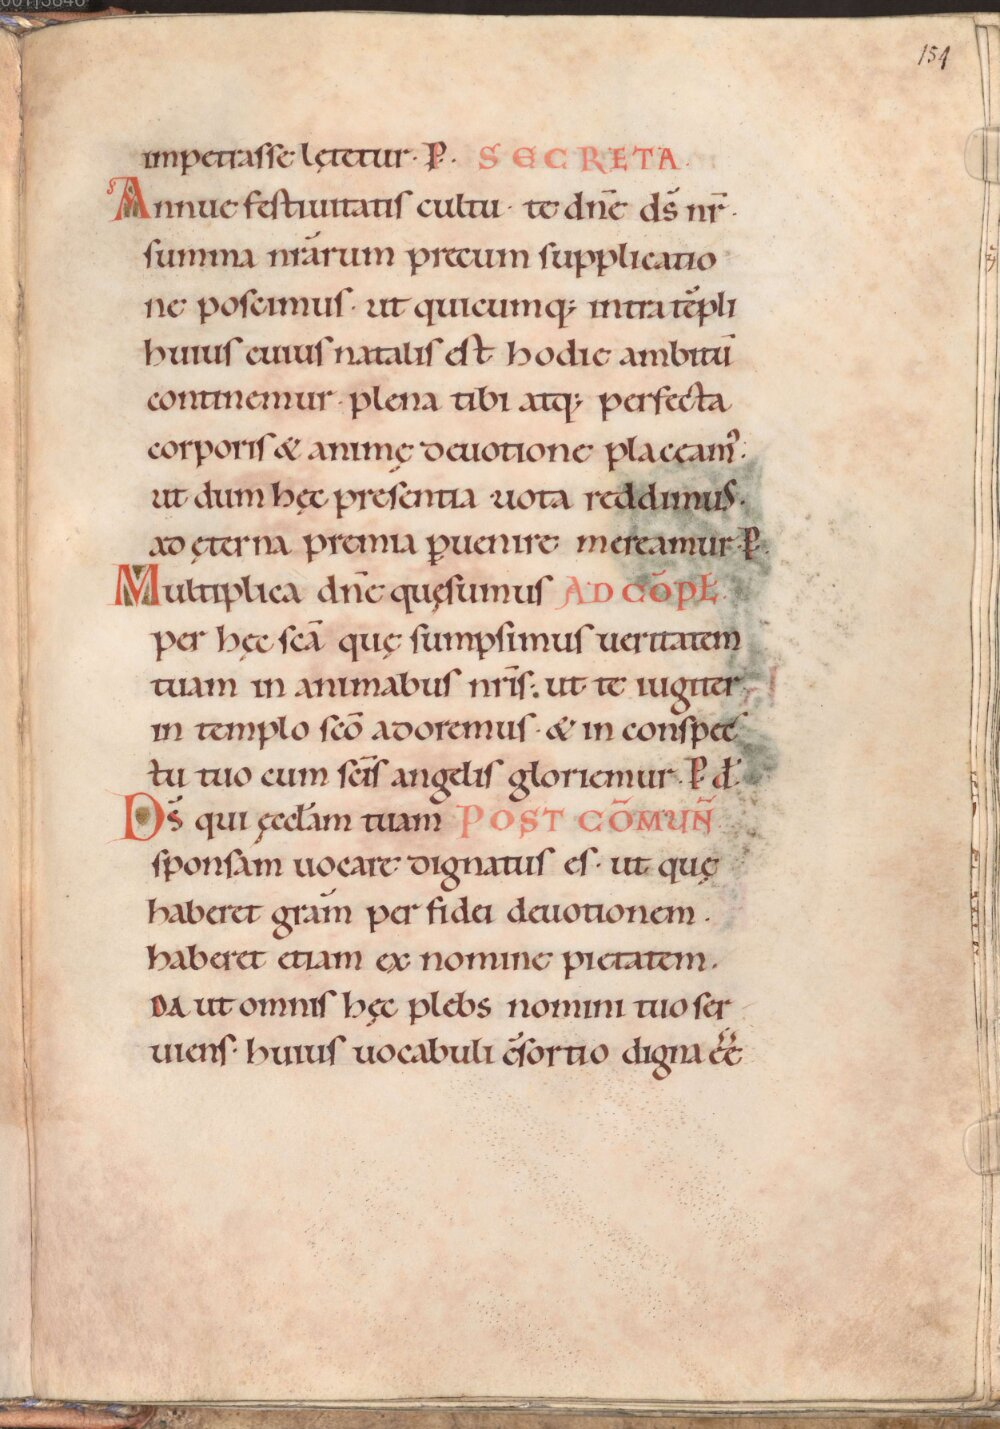 154
impetrasse lętetur · P. SECRETA
Annue festiuitatis cultu · te dn̄e ds̄ nr̄ ·
summa nr̄arum precum supplicatio
ne poscimus · ut quicumq; intra tēpli
huius cuius natalis est hodie ambitū
continemur · plena tibi atq; perfecta
corporis & animę deuotione placeam᷒ ·
ut dum hęc presentia uota reddimus ·
ad ęterna premia ꝑuenire mereamur · P.
Multiplica dn̄e quęsumus AD CŌPL̄
per hęc sc̄a quę sumpsimus ueritatem
tuam in animabus nr̄is · ut te iugiter
in templo sc̄o adoremus · & in conspec
tu tuo cum sc̄is angelis gloriemur · P d̄.
Ds̄ qui ęccl̄am tuam POST CŌMUN̄
sponsam uocare dignatus es · ut quę
haberet gr̄am per fidei deuotionem ·
haberet etiam ex nomine pietatem ·
DA ut omnis hęc plebs nomini tuo ser
uiens · huius uocabuli c̄sortio digna ēē